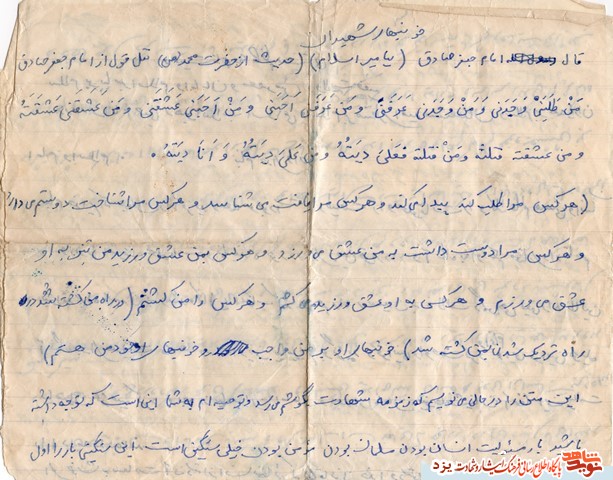 خونبهای شهیدان
قال امام جعفر صادق (پیامبر اسلام) (حدیث از حضرت محمد نقل قول از امام جعفر صادق
مَنْ طَلَبَنی وَجَدَنی وَ مَنْ وَجَدَنی عَرَفَنی وَ مَن عَرَفَنی اَحَبَّنی وَ مَنْ اَحَبَّنی عَشَقَنی وَ مَن عَشَقَنی عَشَقتَهُ
و من عشقته قتلته وَ مَنْ قتلته فَعَلیَّ دیَتهُ وَ مَن عَلیَّ دیَتهُ وَ اَنَا دیَتَهُ .
(هر کس مرا طلب کند پیدا می‌کند و هر کس مرا یافت می شناسد و هر کس مرا شناخت دوستم می دارد
و هر کس مرا دوست داشت به من عشق می ورزد و هر کس بمن عشق ورزید من نیز به او
عشق می ورزم و هر کس به او عشق ورزیدم می کشم و هر کس را من کشتم (در راه من کشته شد در
راه نزدیک شدن بمن کشته شد) خونبهای او بر من واجب و خونبهای او خود من هستم)
این متن را در حالی می نویسم که زمزمه شهادت بگوشم می رسد و توصیه ام به شما اینست که توجه داشته
باشید بار مسئولیت انسان بودن مسلمان بودن مؤمن بودن خیلی سنگین است این سنگینی بار را اول
نوید شاهد
پایگاه اطلاع رسانی فرهنگ ایثار و شهادت یزد